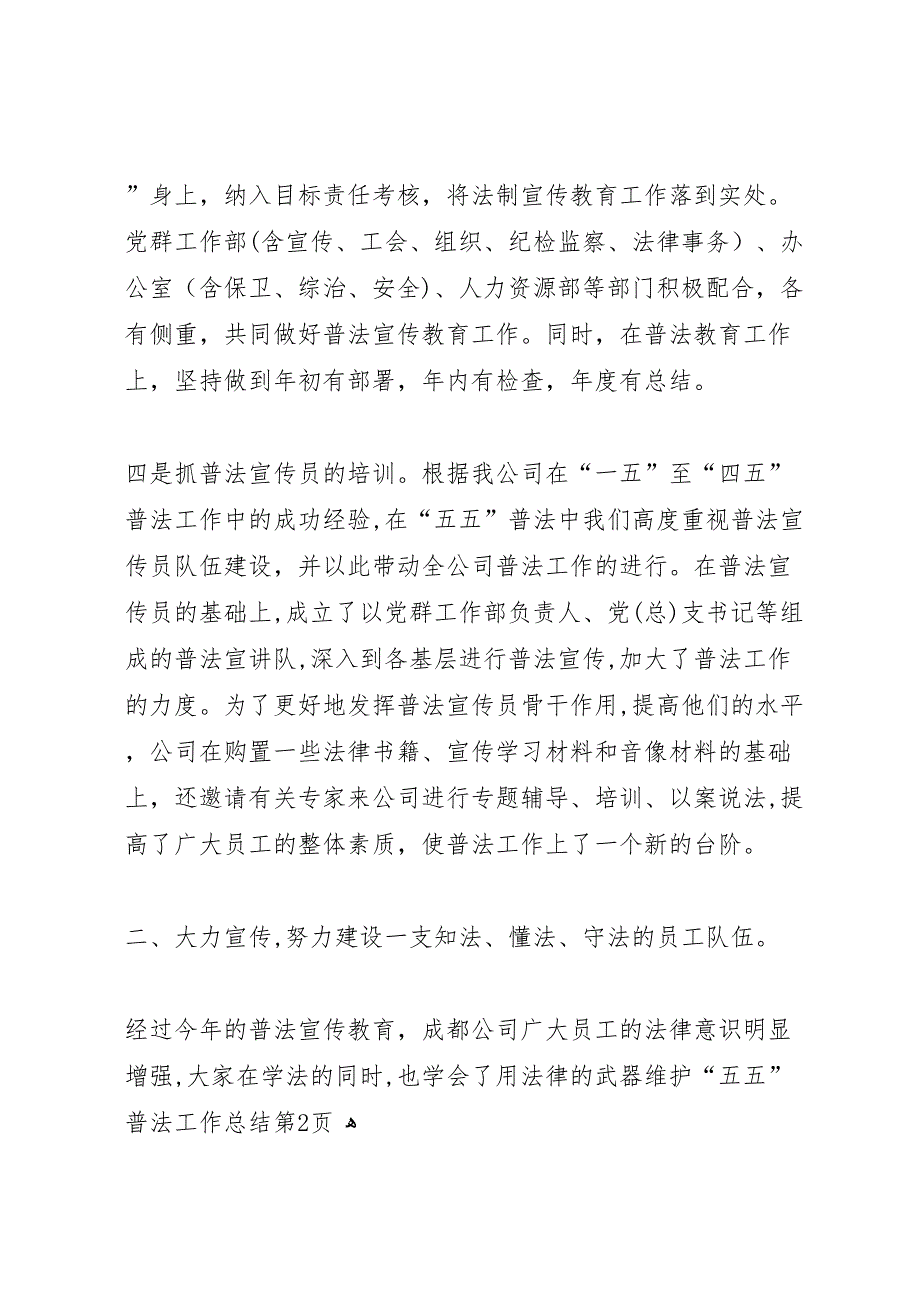 ”身上，纳入目标责任考核，将法制宣传教育工作落到实处。
党群工作部(含宣传、工会、组织、纪检监察、法律事务）、办
公室（含保卫、综治、安全)、人力资源部等部门积极配合，各
有侧重，共同做好普法宣传教育工作。同时，在普法教育工作
上，坚持做到年初有部署，年内有检查，年度有总结。
四是抓普法宣传员的培训。根据我公司在“一五”至“四五”
普法工作中的成功经验,在“五五”普法中我们高度重视普法宣
传员队伍建设，并以此带动全公司普法工作的进行。在普法宣
传员的基础上,成立了以党群工作部负责人、党(总)支书记等组
成的普法宣讲队,深入到各基层进行普法宣传,加大了普法工作
的力度。为了更好地发挥普法宣传员骨干作用,提高他们的水平
，公司在购置一些法律书籍、宣传学习材料和音像材料的基础
上，还邀请有关专家来公司进行专题辅导、培训、以案说法,提
高了广大员工的整体素质，使普法工作上了一个新的台阶。
二、大力宣传,努力建设一支知法、懂法、守法的员工队伍。
经过今年的普法宣传教育，成都公司广大员工的法律意识明显
增强,大家在学法的同时,也学会了用法律的武器维护“五五”
普法工作总结第2页 ﻬ